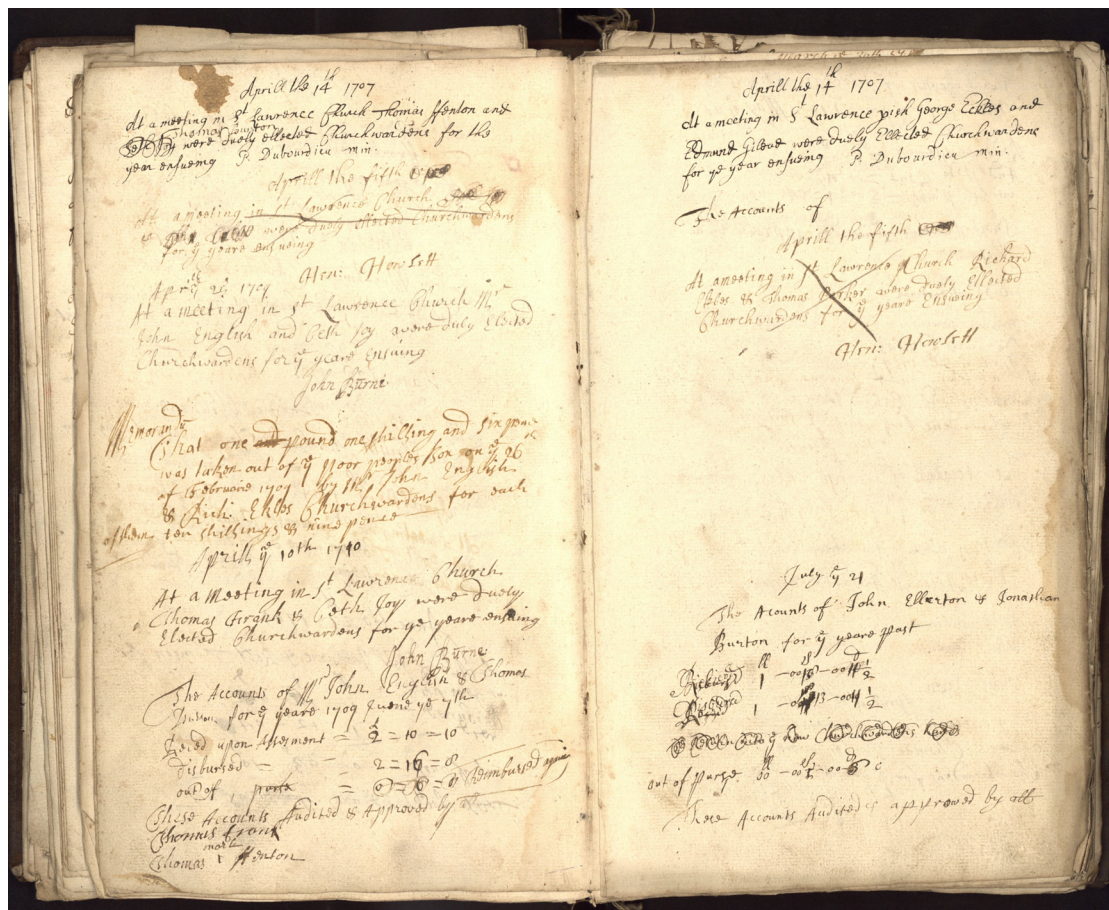 Aprill the 14th 1707
At a meeting in St Lawrence Church Thomas Henton and
Thomas
were duely ellected Churchwardens for the
year ensueing P. Dubourdieu min.
Aprill the fifth
At a meeting in St Lawrence Church
were duely ellected Churchwardens
for ye yeare ensueing
Hen: Howlett
At a meeting in St Lawrence Church Mr
John English and Seth Joy were duly Elected
Churchwardens for ye yeare Ensuing
John Burne
Memorandum
That one and pound one shilling and six pence
was taken out of ye poor peoples box on ye 26th
of February 1709 by Mr John English
& Rich: Ekles Churchwardens for each
of them ten shillings & nine pence
Aprill ye 10th 1710
At a Meeting in St Lawrence Church
Thomas Frank & Seth Joy were duely
Elected Churchwardens for ye yeare ensuing
John Burne
The Accounts of Mr John English & Thomas
for ye yeare 1709 June ye 7th
upon Assesment = 2 = 10 = 10
disbursed = 2 = 16 = 8
out of purse = 0 = 6 = 8 Reimbursed again
These Accounts Audited & Approved by
Thomas Frank
mark
Thomas Henton
Aprill the 14th 1707
At a meeting in St Lawrence pish George Eckles and
Edmund were duely Ellected Churchwardens
for ye year ensueing P. Dubourdieu min.
The Accounts of
Aprill the fifth
At a meeting in St Lawrence Church Richard
Ekles & Thomas Parker were duely Ellected
Churchwardens for ye yeare Ensueing
Hen: Howlett
July ye 21
The Acounts of John Ellerton & Jonathan
Burton for ye yeare past
ye New Churchwardens
out of Purse
These Accounts Audited & approved by all